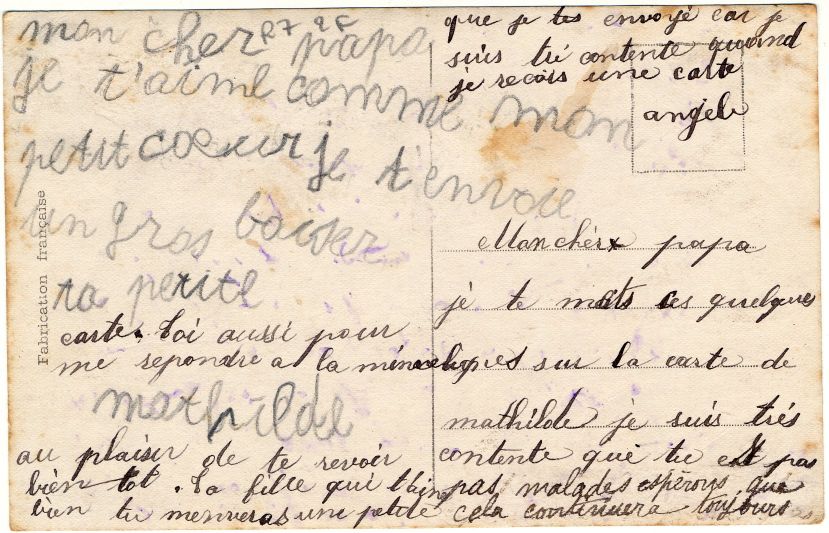 mon cher papa
je t'aime comme mon
petit coeur je t'envoie
un gros baiser
ta petite
mathilde
Mon chér papa
je te mets ces quelques
lignes sur la carte de
mathilde je suis trés
contente que tu est pas
pas malades espérons que
cela continuera toujours
bien tu menveras une petite
carte. toi aussi pour
me repondre a la mienne
au plaisir de te revoir
bien tot. ta fille qui
que je tes envoyé car je
suis tré contente quand
je recois une carte
angele
Fabrication française